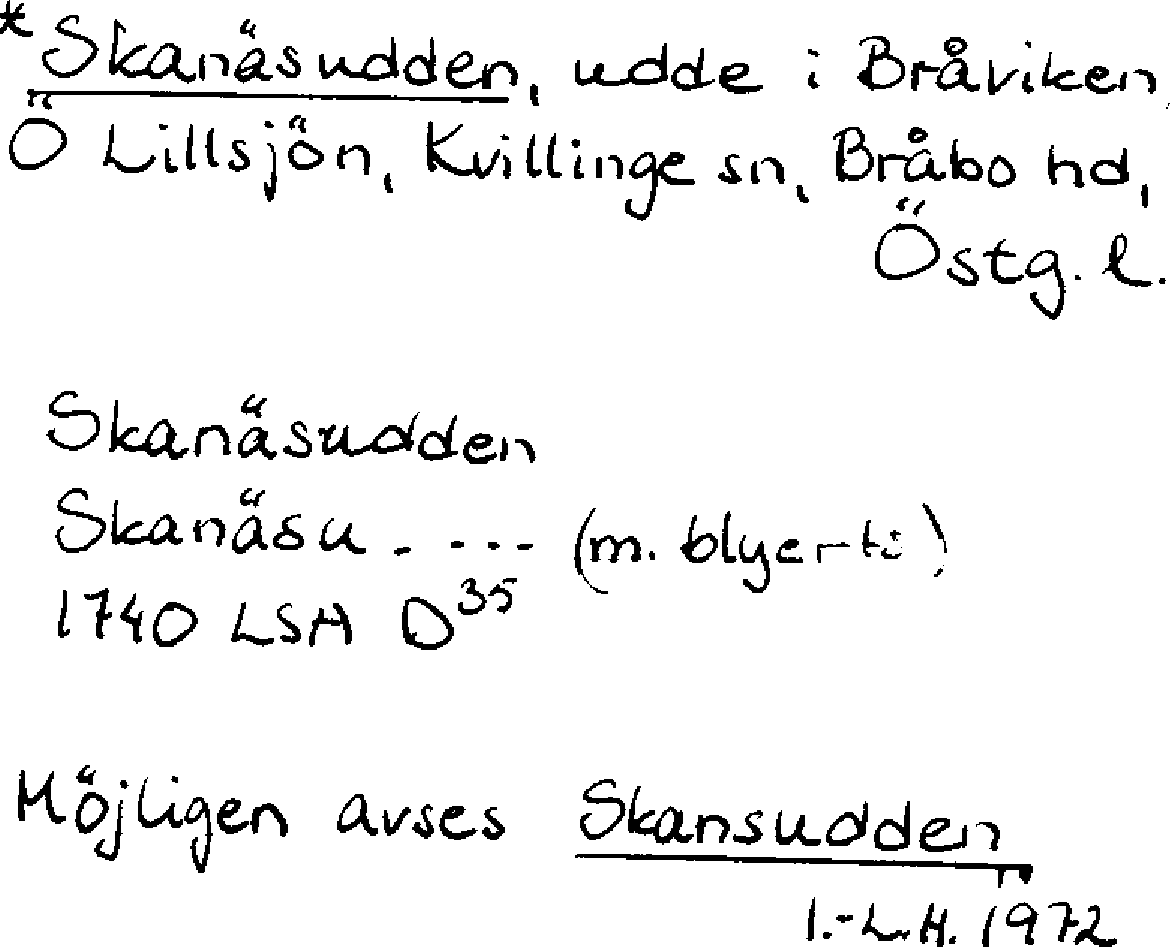 *Skanäsudden, udde i Bråviken,
Ö Lillsjön, Kvillinge sn, Bråbo hd,
Östg. l.
Skanäsudden
Skanäsu - --- (m. blyerts)
1740 LSA D35
Möjligen avses Skansudden
I.-L.H. 1972